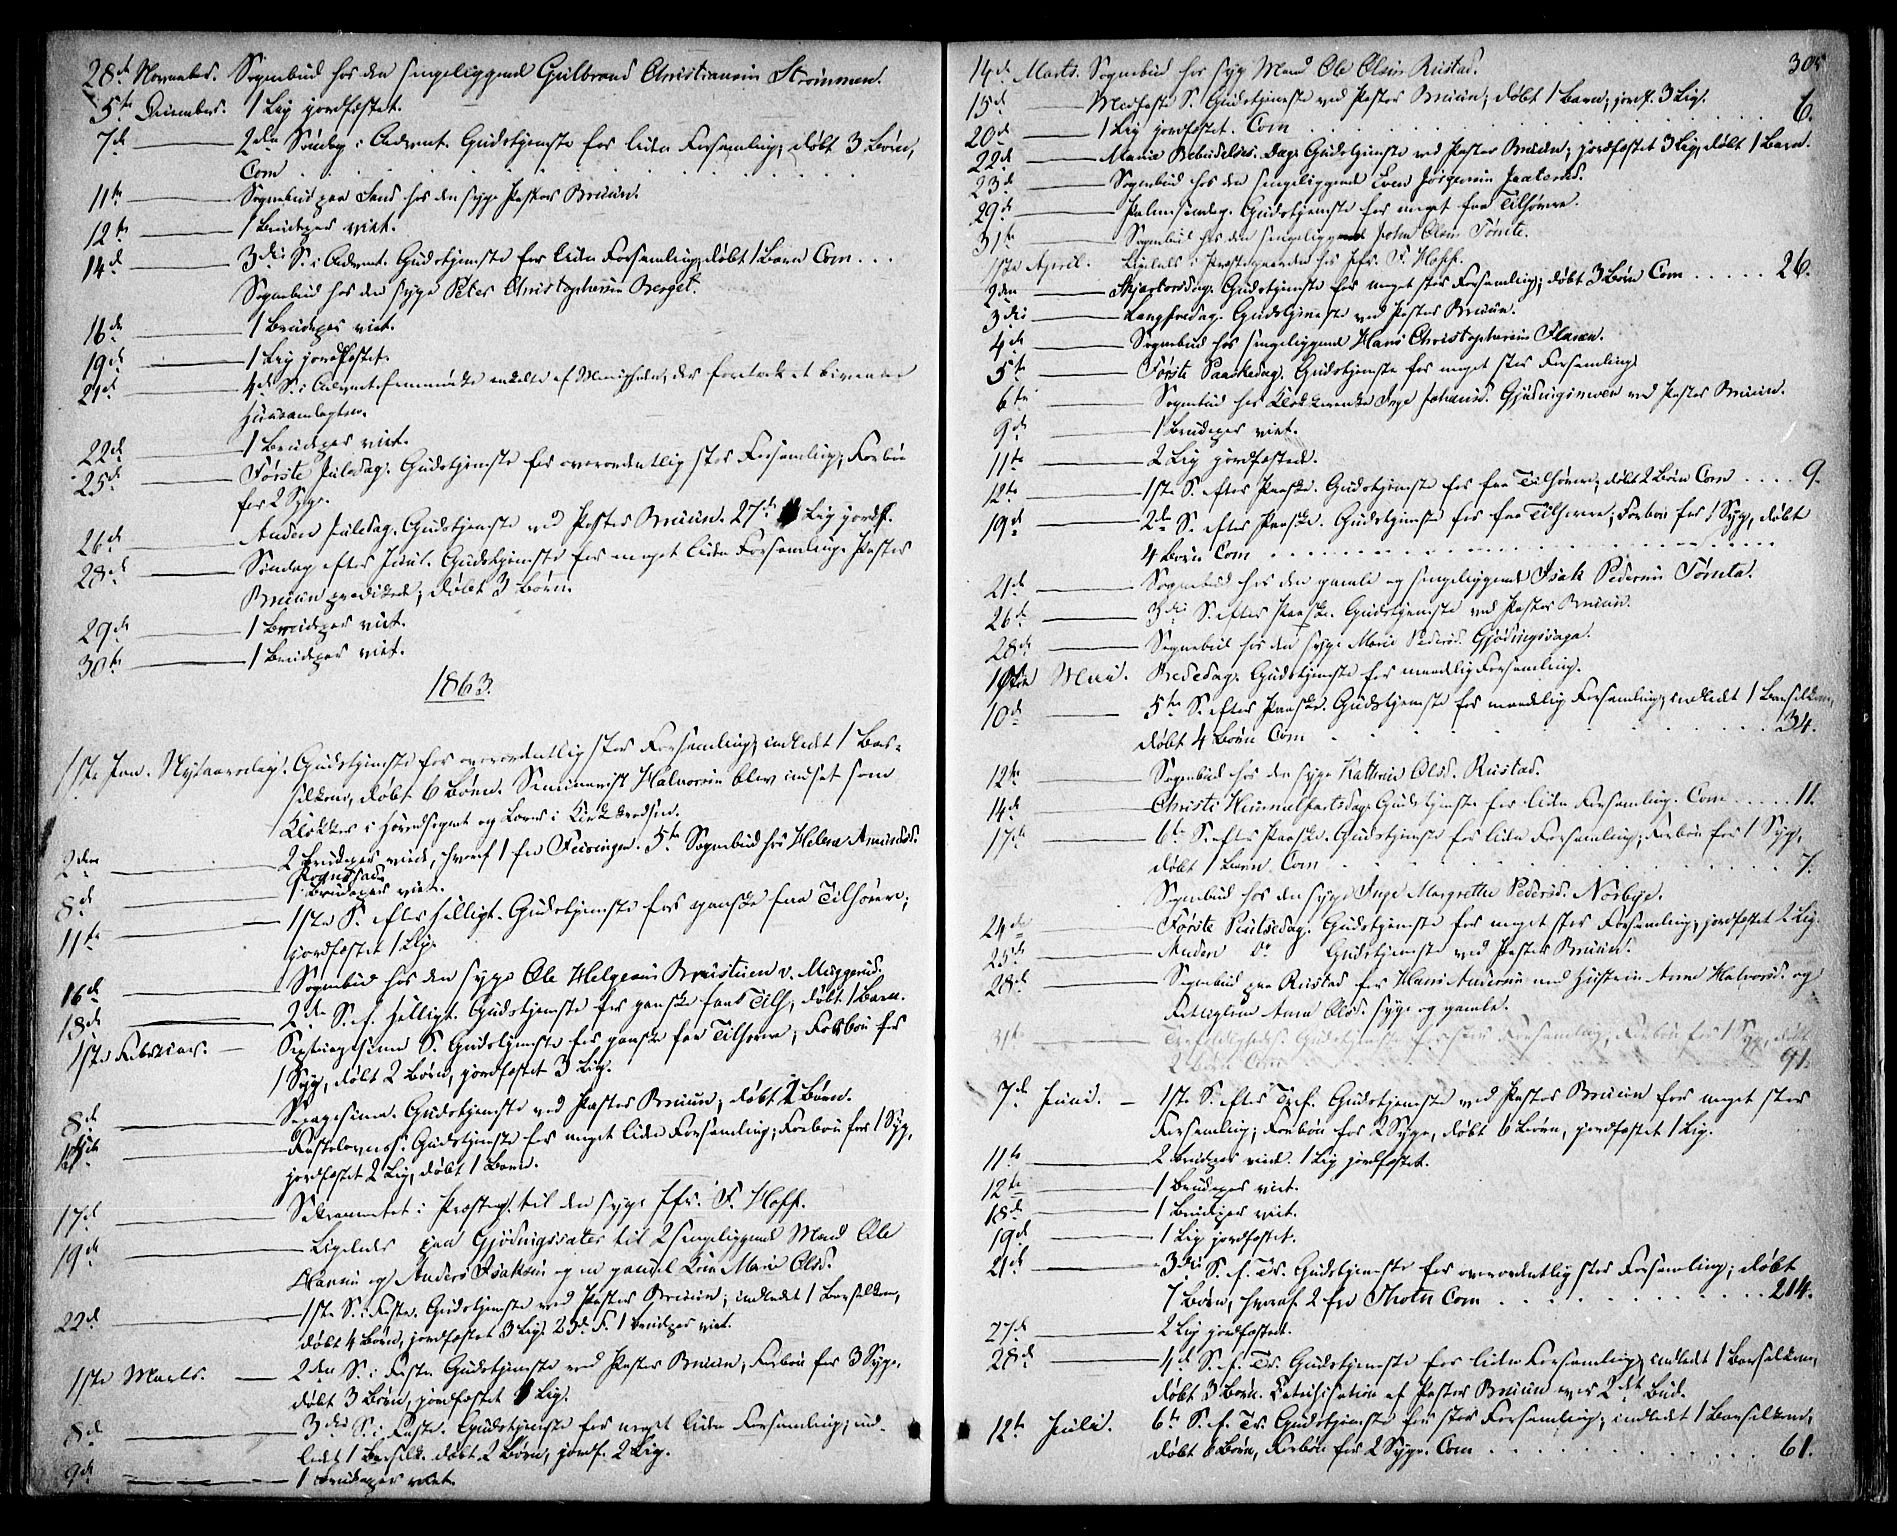 28de November. Sognebud hos den sengeliggende Gulbrand Christiansen Strømmen.
5te December. 1 Lig jordfæstet.
7de 2den Søndag i Advent. Gudstjeneste for liden Forsamling; døbt 3 Børn,
Com
11te Sognebud paa Sand hos den syge Pastor Bruun.
12te 1 Brudepar viet.
14de 3die S. i Advent. Gudstjeneste for liden Forsamling, døbt 1 Barn Com
Sognebud hos den syge Peter Christophersen Berget.
16de 1 Brudepar viet.
19de 1 Lig jordfæstet.
21de 4de S. i Advent fremmødte enkelte af Menigheden, der foretoges
22de 1 Brudepar viet.
25de Første Juledag. Gudstjeneste for overordentlig stor Forsamling; Forbøn
for 2 Syge.
26de Anden Juledag. Gudstjeneste ved Pastor Bruun. 27de Lig jordf.
28de Søndag efter Juul. Gudstjeneste for meget liden Forsamling. Pastor
Bruun prædikede; døbt 3 Børn.
29de 1 Brudepar viet.
30te 1 Brudepar viet.
1863.
1ste Jan. Nytaarsdag. Gudstjeneste for overordentlig stor Forsamling; indledt 1 Bar-
selkone, døbt 6 Børn. Seminarist Halvorsen blev indsat som
Klokker i Hovedsognet og Lærer i
2den 2 Brudepar viede, hvoraf 1 fra Feiringen. 5te Sognebud hos Helene Amundsd.
Rognstad.
8de 1 Brudepar viet.
11te 1ste S. efter Helligt. Gudstjeneste for ganske faa Tilhørere;
jordfæstet 1 Lig.
16de Sognebud hos den syge Ole Helgesen Brustuen v. Muggerud.
18de 2den S. e. Helligt. Gudstjeneste for ganske faa Tilh, døbt 1 Barn.
1ste Februar. Septuagesima S. Gudstjeneste for ganske faa Tilhørere; Forbøn for
1 Syg, døbt 2 Børn, jordfæstet 3 Lig.
8de Sexagesima. Gudstjeneste ved Pastor Bruun; døbt 2 Børn.
15de Fastelavnss. Gudstjeneste for meget liden Forsamling; Forbøn for 1 Syg,
jordfæstet 2 Lig, døbt 1 Barn.
17de Sakramentet i Præsteg. til den syge Jfr. F. Hoff.
19de Ligeledes paa Gjødingssæter til 2 sengeliggende Mænd Ole
Hansen og Anders Isaksen og en gammel Kone Marie Olsd.
22de 1ste S. i Faste. Gudstjeneste ved Pastor Bruun; indledt 1 Barselkone,
døbt 4 Børn, jordfæstet 3 Lig. 23de F. 1 Brudepar viet.
1ste Marts. 2den S. i Faste. Gudstjeneste ved Pastor Bruun; Forbøn for 3 Syge,
døbt 3 Børn, jordfæstet 1 Lig.
8de 3die S. i Faste. Gudstjeneste for meget liden Forsamling; ind-
ledt 1 Barselk. døbt 2 Børn, jordf. 2 Lig.
9de 1 Brudepar viet.
305
14de Marts. Sognebud hos syg Mand Ole Olsen Rustad.
15de Midfaste S. Gudstjeneste ved Pastor Bruun; døbt 1 Barn; jordf. 3 Lig.
20de 1 Lig jordfæstet. Com 6.
22de Mariæ Bebudelses Dag. Gudstjeneste ved Pastor Bruun; jordfæstet 3 Lig, døbt 1 Barn.
23de Sognebud hos den sengeliggende Even Jørgensen
29de Palmesøndag. Gudstjeneste for meget faa Tilhørere.
31te Sognebud hos den sengeliggende John Olsen Tømte.
1ste April. Ligeledes i Præstegaarden hos Jfr. F. Hoff.
2den Skjærtorsdag. Gudstjeneste for meget stor Forsamling; døbt 3 Børn Com 26.
3die Langfredag. Gudstjeneste ved Pastor Bruun.
4de Sognebud hos sengeliggende Hans Christophersen Flaaen.
5te Første Paaskedag. Gudstjeneste for meget stor Forsamling.
6te Sognebud hos Klokkerenke Inge Johansd. Gjødingsmoen ved Pastor Bruun.
9de 1 Brudepar viet.
11te 2 Lig jordfæstede.
12te 1ste S. efter Paaske. Gudstjeneste for faa Tilhørere; døbt 2 Børn Com 9.
19de 2den S. efter Paaske. Gudstjeneste for faa Tilhørere; Forbøn for 1 Syg, døbt
4 Børn Com
21de Sognebud hos den gamle og sengeliggende Isak Pedersen Tømte.
26te 3die S. efter Paaske. Gudstjeneste ved Pastor Bruun.
28de Sognebud hos den syge Marie Pedersd. Gjødingsaga.
1ste Mai. Bededag. Gudstjeneste for maadelig Forsamling.
10de 5te S. efter Paaske. Gudstjeneste for maadelig Forsamling; indledt 1 Barselkone,
døbt 4 Børn Com 34.
12te Sognebud hos den syge Kathrine Olsd. Rustad.
14de Christi Himmelfartsdag. Gudstjeneste for liden Forsamling. Com 11.
17de 6te S. efter Paaske. Gudstjeneste for liden Forsamling; Forbøn for 1 Syg,
døbt 1 Barn Com 7.
Sognebud hos den syge Inge Margrethe Pedersd. Nordbye.
24de Første Pintsedag. Gudstjeneste for meget stor Forsamling; jordfæstet 2 Lig.
25de Anden Do Gudstjeneste ved Pastor Bruun.
28de Sognebud paa Rustad for Hans Andersen med Hustru Anne Halvorsd. og
Fattiglem Anne Olsd. syge og gamle.
31te Trefoldigheds. Gudstjeneste for stor Forsamling; Forbøn for 1 Syg, døbt
2 Børn Com 91.
7de Juni. 1ste S. efter Tref. Gudstjeneste ved Pastor Bruun for meget stor
Forsamling; Forbøn for 2 Syge, døbt 6 Børn, jordfæstet 1 Lig.
11te 2 Brudepar viet. 1 Lig jordfæstet.
12te 1 Brudepar viet.
18de 1 Brudepar viet.
19de 1 Lig jordfæstet.
21de 3die S. e. Tr. Gudstjeneste for overordentlig stor Forsamling; døbt
7 Børn, hvoraf 2 fra Thoten Com 214.
27de 2 Lig jordfæstet.
28de 4de S. e. Tr. Gudstjeneste for liden Forsamling; indledt 1 Barselkone,
døbt 3 Børn. Katechisation af Pastor Bruun over 2det Bud.
12te Juli. 6te S. e. Tr. Gudstjeneste for stor Forsamling; indledt 1 Barselkone,
døbt 6 Børn, Forbøn for 2 Syge. Com 61.